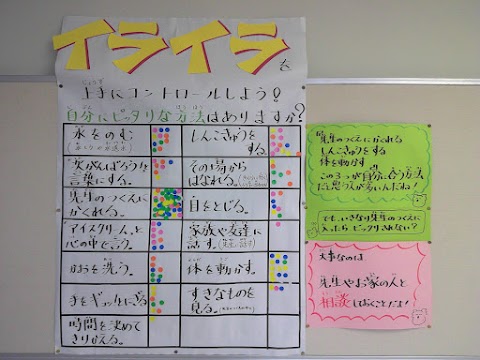 イライラを
上手にコントロールしよう!
自分にピッタリな方法はありますか?
水をのむ
しんこきゅうを
する。
言葉にする。
その場から
はなれる。
先生のつくえに
かくれる。
目をとじる。
「アイスクリーム」と
心の中で言う。
家族や友達に
話す。
かおを洗う。
体を動かす。
手をギュッとにぎる
すきなものを
見る。
時間を決めて
きりかえる。
先生のつくえにかくれる
しんこきゅうをする
体を動かす
この3つが自分に合う方法
だと思う人が多いんだね!
でも、いきなり先生のつくえに
入ったらビックリされない?
大事なのは
先生やお家の人と
相談しておくことだよ!